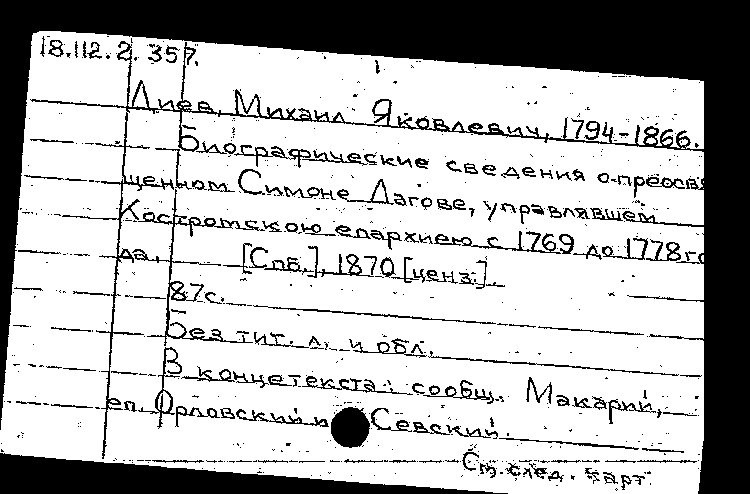 18.112.2.357.
Диев, Михаил Яковлевич, 1794-1866.
Биографические сведения о преосвя
щенном Симоне Лагове, управлявшем
Костромскою епархиею с 1769 до 1778 го
да. [Спб.], 1870 [ценз.].
87с.
Без тит. л. и обл.
В конце текста: сообщ. Макарий,
еп. Орловский и Севский.
См. след. карт.